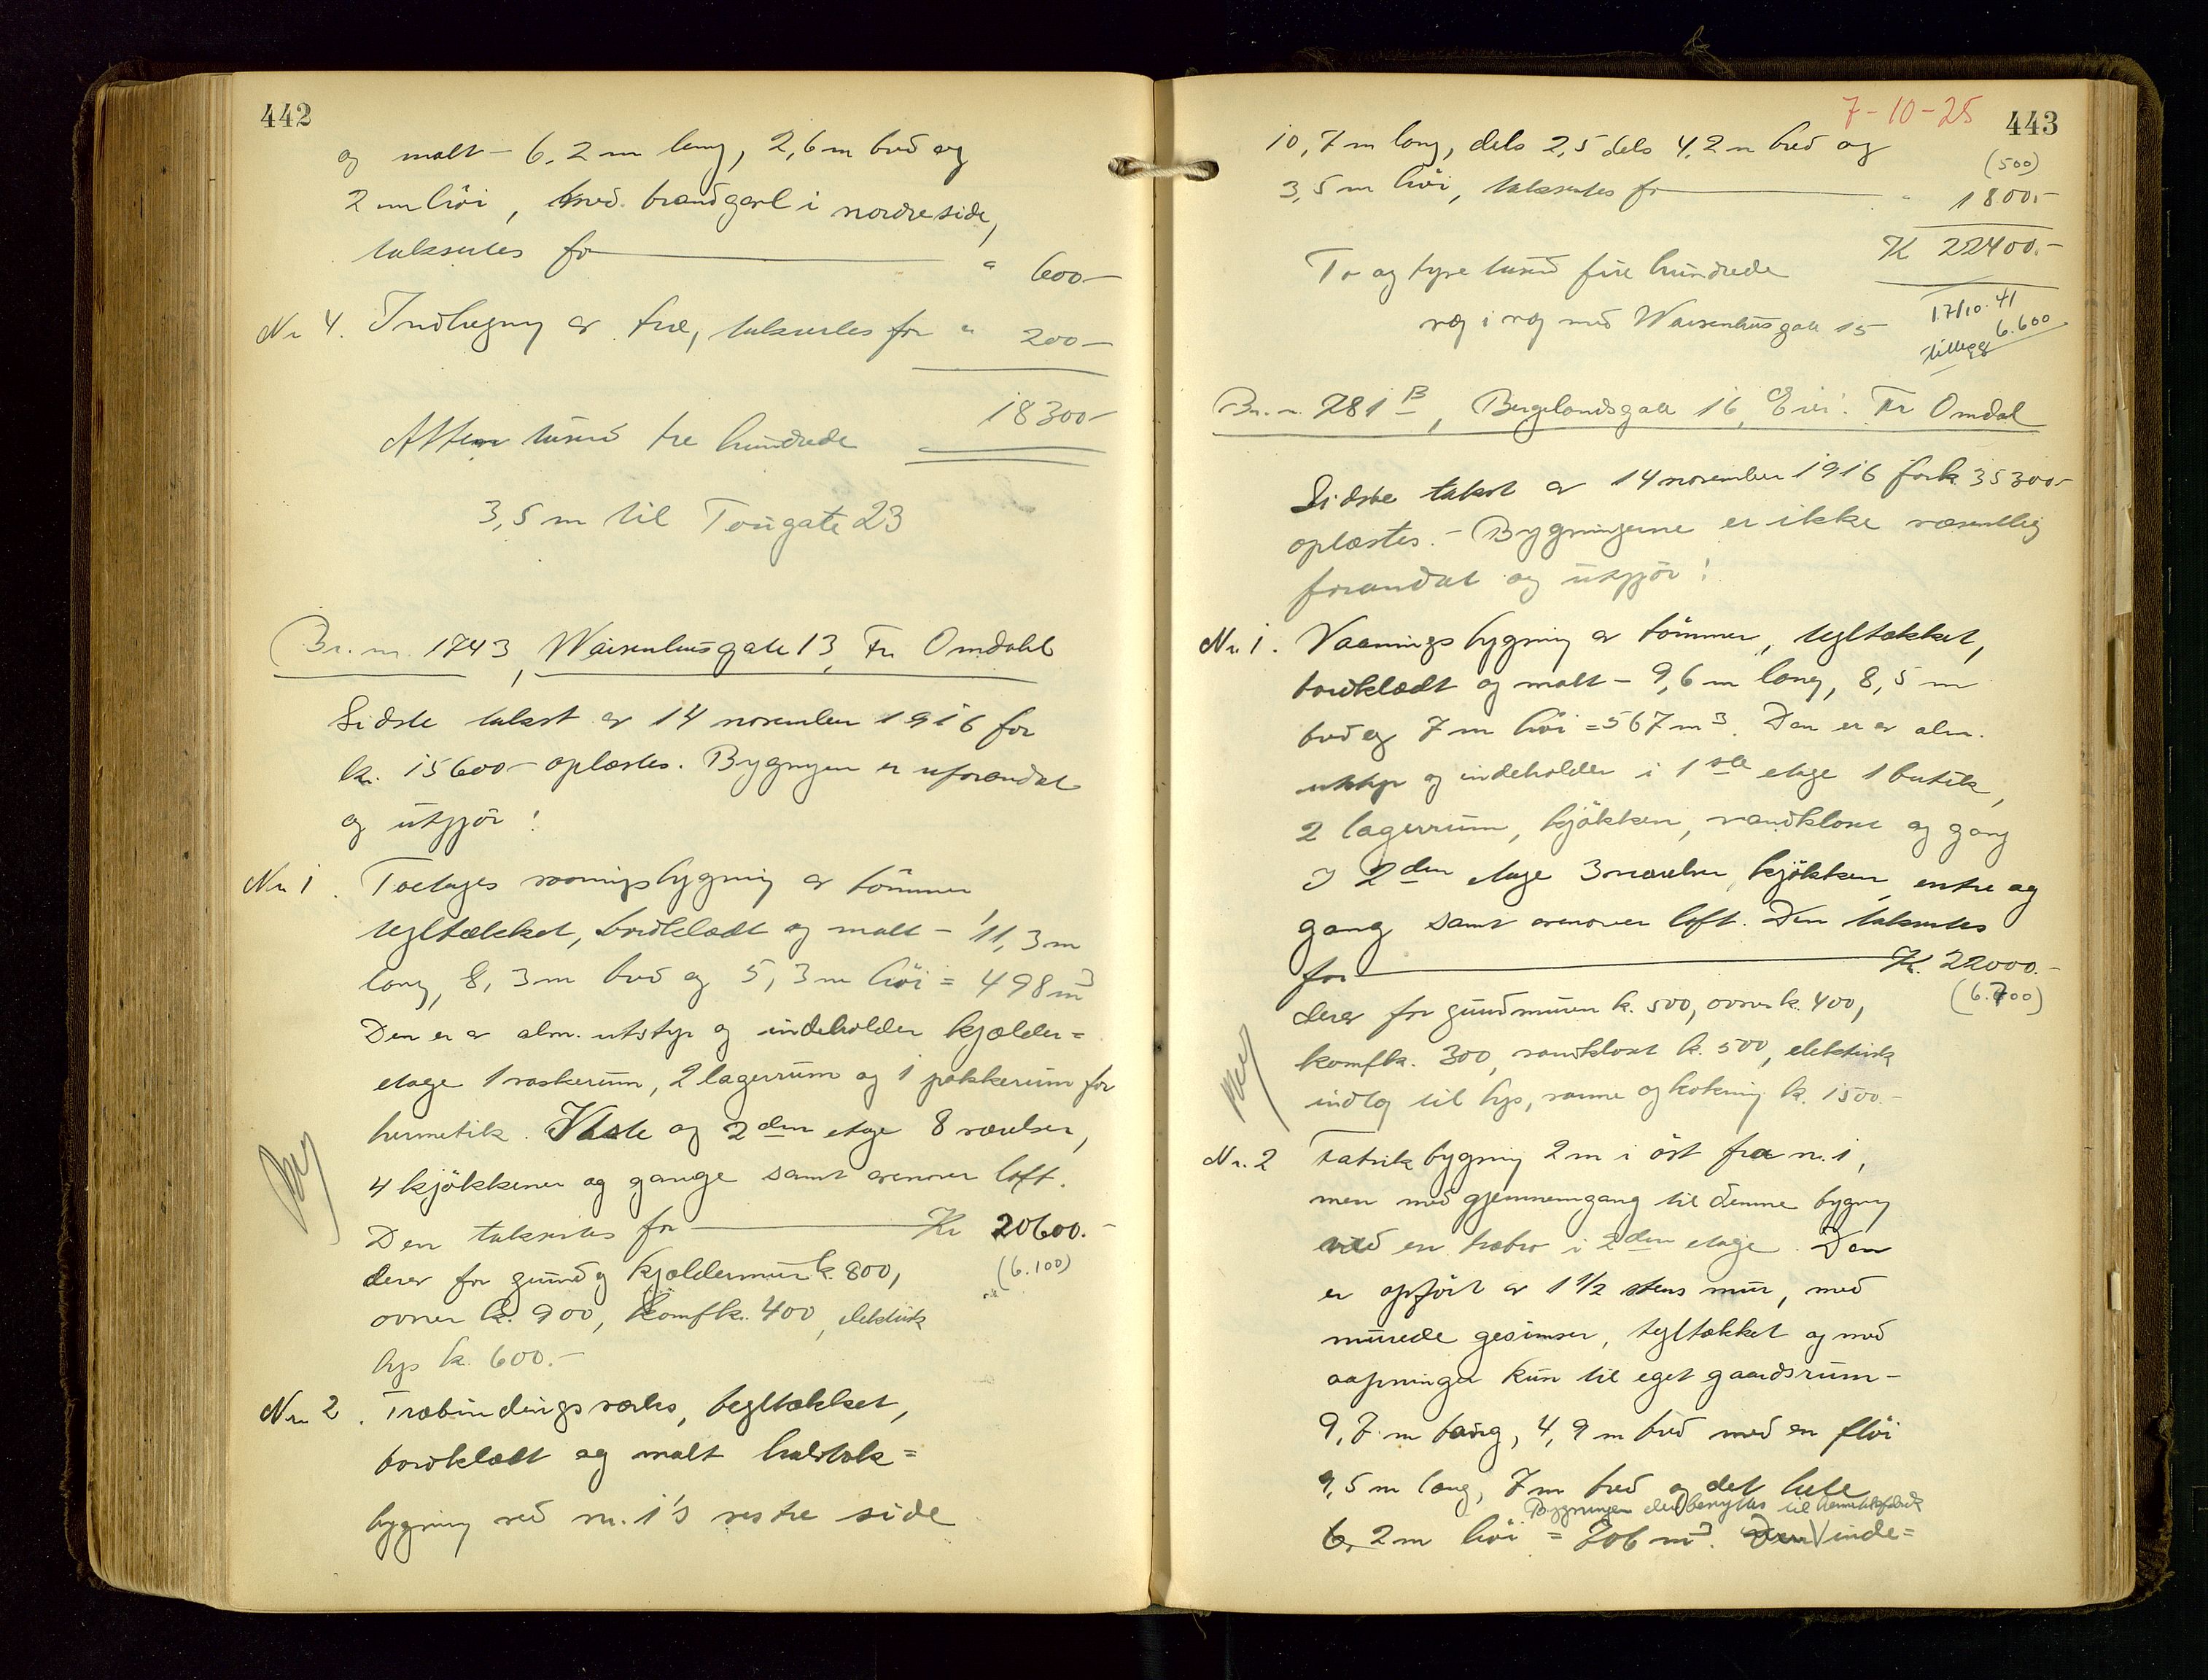 442
og malt - 6,2 m lang, 2,6 m bred og
2 m höi, med brandgavl i nordre side,
takseres for " 600 -
Nr 4. Indhegning av træ, takseres for " 200 -
18300 -
Atten tusind tre hundrede
3,5 m til Tougate 23
Br. nr. 1743, Waisenhusgate 13, Fr Omdahl
Sidste takst av 14 november 1916 for
kr. 15600 - oplæstes. Bygningen er uforandret
og utgjör:
Nr 1. Toetages vaaningsbygning av tömmer,
tegltækket, bordklædt og malt - 11,3 m
lang, 8,3 m bred og 5,3 m höi = 498 m3
Den er av alm. utstyr og indeholder kjælder=
etage 1 vaskerum, 2 lagerrum og 1 pakkerum for
hermetik. 1ste og 2den etage 8 værelser,
4 kjökkener og gange samt ovenover loft.
Den takseres for Kr 20600. -
derav for grund og kjældermur k. 800, (6.100)
ovner k. 900, komf k. 400, elektrisk
lys k. 600. -
Nr 2. Træbindingsverks, tegltækket,
bordklædt og malt halvtak=
bygning ved nr. 1's vestre side
7-10-25
443
10,7 m lang, dels 2,5 dels 4,2 m bred og
(500)
3,5 m höi, takseres for " 1800. -
K 22400. -
To og tyve tusind fire hundrede
væg i væg med Waisenhusgate 15
17/10-41
6.600
tillegg
Br. nr. 781 B, Bergelandsgate 16, Eier: Fr Omdal
Sidste takst av 14 november 1916 for k 35300 -
oplæstes. - Bygningerne er ikke væsentlig
forandret og utgjör:
Nr. 1. Vaaningsbygning av tömmer, tegltækket,
bordklædt og malt - 9,6 m lang, 8,5 m
bred og 7 m höi = 567 m3. Den er av alm.
utstyr og indeholder i 1ste etage 1 butik,
2 lagerrum, kjökken, vandklosset og gang
I 2den etage 3 værelser, kjökken, entre og
gang samt ovenover loft. Den takseres
for K. 22000. -
derav for grundmuren k. 500, ovner k. 400, (6.700)
komf k. 300, vandkloset k. 500, elektrisk
indlæg til lys, varme og kokning k. 1500. -
Nr. 2 Fabrikbygning 2 m i öst fra nr. 1,
men med gjennemgang til denne bygning
ved en træbro i 2den etage. Den
er opfört av 1 1/2 stens mur, med
murede gesimser, tegltækket og med
aapninger kun til eget gaardsrum -
9,7 m lang, 4,9 m bred med en flöi
9,5 m lang, 7 m bred og det hele
Bygningen benyttes til hermetikfabrik
6,2 m höi = 706 m3. Den inde=